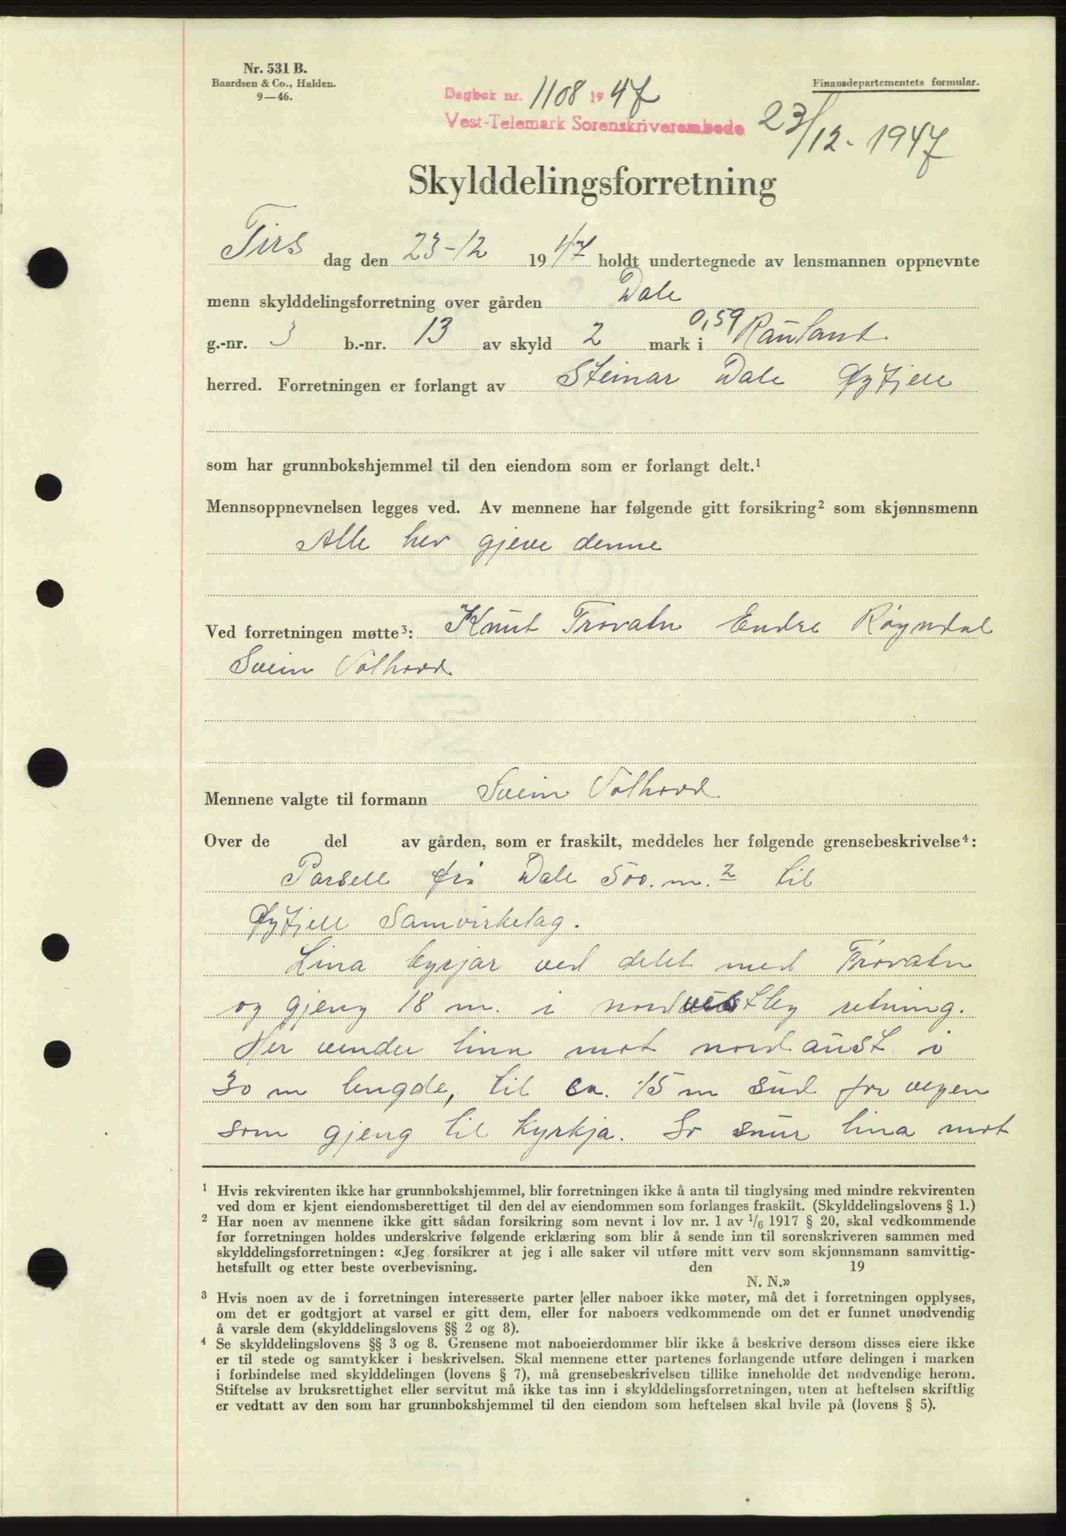 Nr. 531 B.
Baardsen & Co., Halden.
9—46.
Finansdepartementets formular.
Dagbok nr. 1108 1947
Vest-Telemark Sorenskriverembede
23/12. 1947
Skylddelingsforretning
Tirs dag den 23-12 1947 holdt undertegnede av lensmannen oppnevnte
menn skylddelingsforretning over gården Dale
g.-nr. 3 b.-nr. 13 av skyld 2 mark i 0,59 Rauland
herred. Forretningen er forlangt av Steinar Dale Øyfjell
som har grunnbokshjemmel til den eiendom som er forlangt delt.¹
Mennsoppnevnelsen legges ved. Av mennene har følgende gitt forsikring² som skjønnsmenn
Alle hev gjeve denne
Ved forretningen møtte³: Knut Trovatn Endre Røyndal
Svein Volhovd
Mennene valgte til formann Svein Volhovd
Over de del av gården, som er fraskilt, meddeles her følgende grensebeskrivelse⁴:
Parsell frå Dale 500. m.² til
Øyfjell Samvirkelag.
Lina byrjar ved delet med Trovatn
og gjeng 18 m. i nordvestleg retning.
Her vender lina mot nordaust i
30 m lengde, til ca. 15 m sud for vegen
som gjeng til kyrkja. So snur lina mot
¹ Hvis rekvirenten ikke har grunnbokshjemmel, blir forretningen ikke å anta til tinglysing med mindre rekvirenten
ved dom er kjent eiendomsberettiget til den del av eiendommen som forlanges fraskilt. (Skylddelingslovens § 1.)
² Har noen av mennene ikke gitt sådan forsikring som nevnt i lov nr. 1 av 1/6 1917 § 20, skal vedkommende
før forretningen holdes underskrive følgende erklæring som blir å sende inn til sorenskriveren sammen med
skylddelingsforretningen: «Jeg forsikrer at jeg i alle saker vil utføre mitt verv som skjønnsmann samvittig-
hetsfullt og etter beste overbevisning. den 19
N. N.»
³ Hvis noen av de i forretningen interesserte parter (eller naboer ikke møter, må det i forretningen opplyses,
om det er godtgjort at varsel er gitt dem, eller for naboers vedkommende om det er funnet unødvendig
å varsle dem (skylddelingslovens §§ 2 og 8).
⁴ Se skylddelingslovens §§ 3 og 8. Grensene mot naboeierdommer blir ikke å beskrive dersom disses eiere ikke
er til stede og samtykker i beskrivelsen. Skal mennene etter partenes forlangende utføre delingen i marken
i forbindelse med skylddelingen (lovens § 7), må grensebeskrivelsen tillike inneholde det nødvendige herom.
Stiftelse av bruksrettighet eller servitut må ikke tas inn i skylddelingsforretningen, uten at heftelsen skriftlig
er vedtatt av den som har grunnbokshjemmel til den eiendom som heftelsen skal hvile på (lovens § 5).